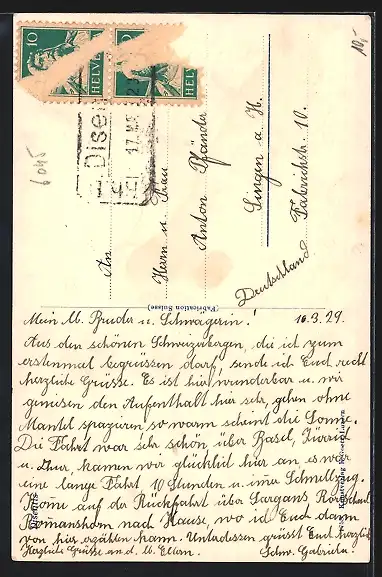 10 HELVE HELVE
Disen
17.III.29
6045
10,-
An
Herrn u. Frau
Anton Pfänder
Singen a H.
Fabrikstr. 10.
Deutschland
(Fabrication Suisse)
Mein lb. Bruder u. Schwägerin! 16.3.29.
Aus den schönen Schweizerbergen, die ich zum
erstenmal begrüssen darf, sende ich Euch recht
herzliche Grüsse. Es ist hier wunderbar u. wir
geniesen den Aufenthalt hier sehr, gehen ohne
Mantel spazieren so warm scheint die Sonne.
Die Fahrt war sehr schön über Basel, Zürich
u. Chur, kamen wir glücklich hier an es war
eine lange Fahrt 10 Stunden u. imer Schnellzug.
Kome auf der Rückfahrt über Sargans
Romanshorn nach Hause, wo ich Euch dann
von hier erzählen kann. Unterdessen grüsst Euch herzlich
Herzliche Grüsse an d. lb. Eltern. Schw. Gabriela.
Disentis